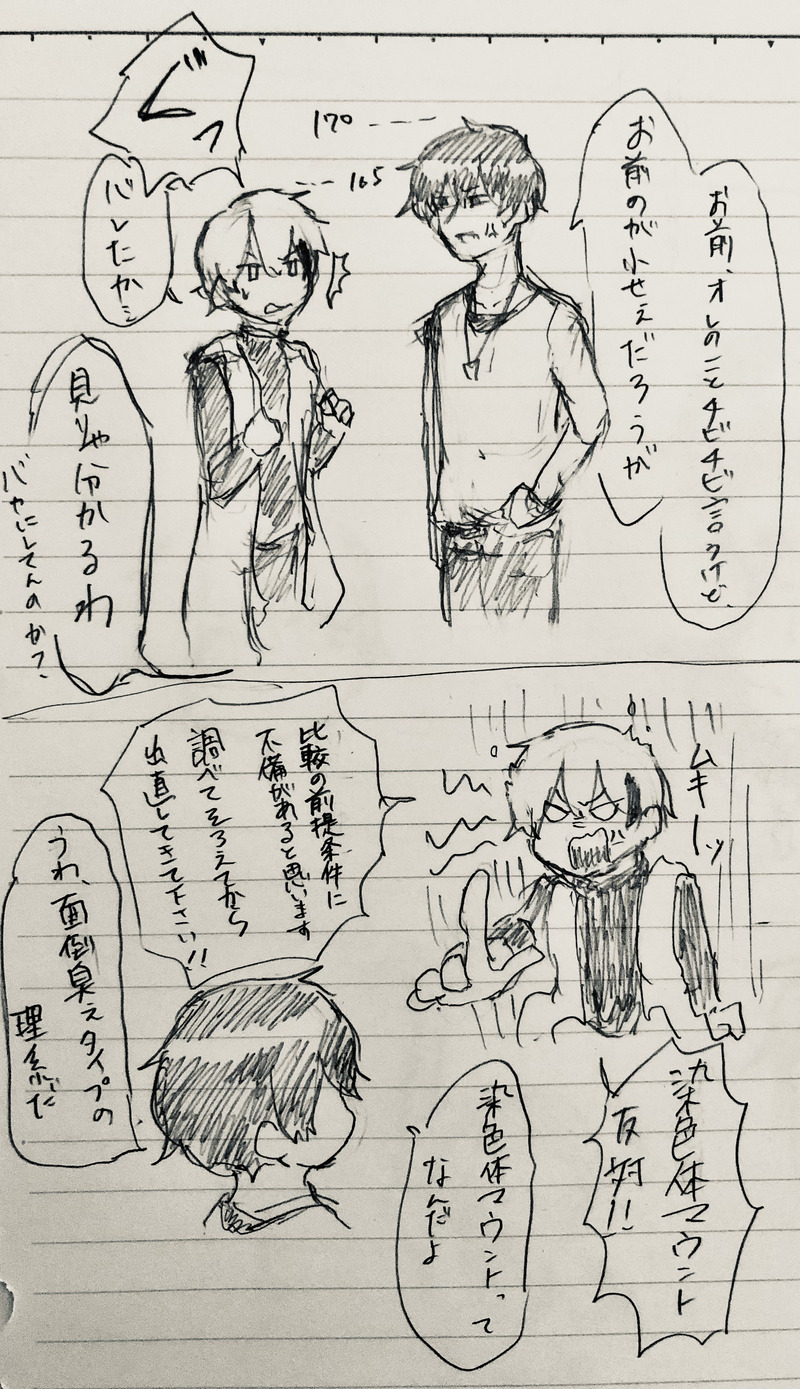 お前、オレのことチビチビ言うけど、
お前のが小せぇだろうが
170
165
ぐっ
バレたか…
見りゃ分かるわ
バカにしてんのか?
ムキーッ
染色体マウント
反対!!
染色体マウントって
なんだよ
比較の前提条件に
不備があると思います
調べてそろえてから
出直してきて下さい!!
うわ、面倒臭えタイプの
理系だ